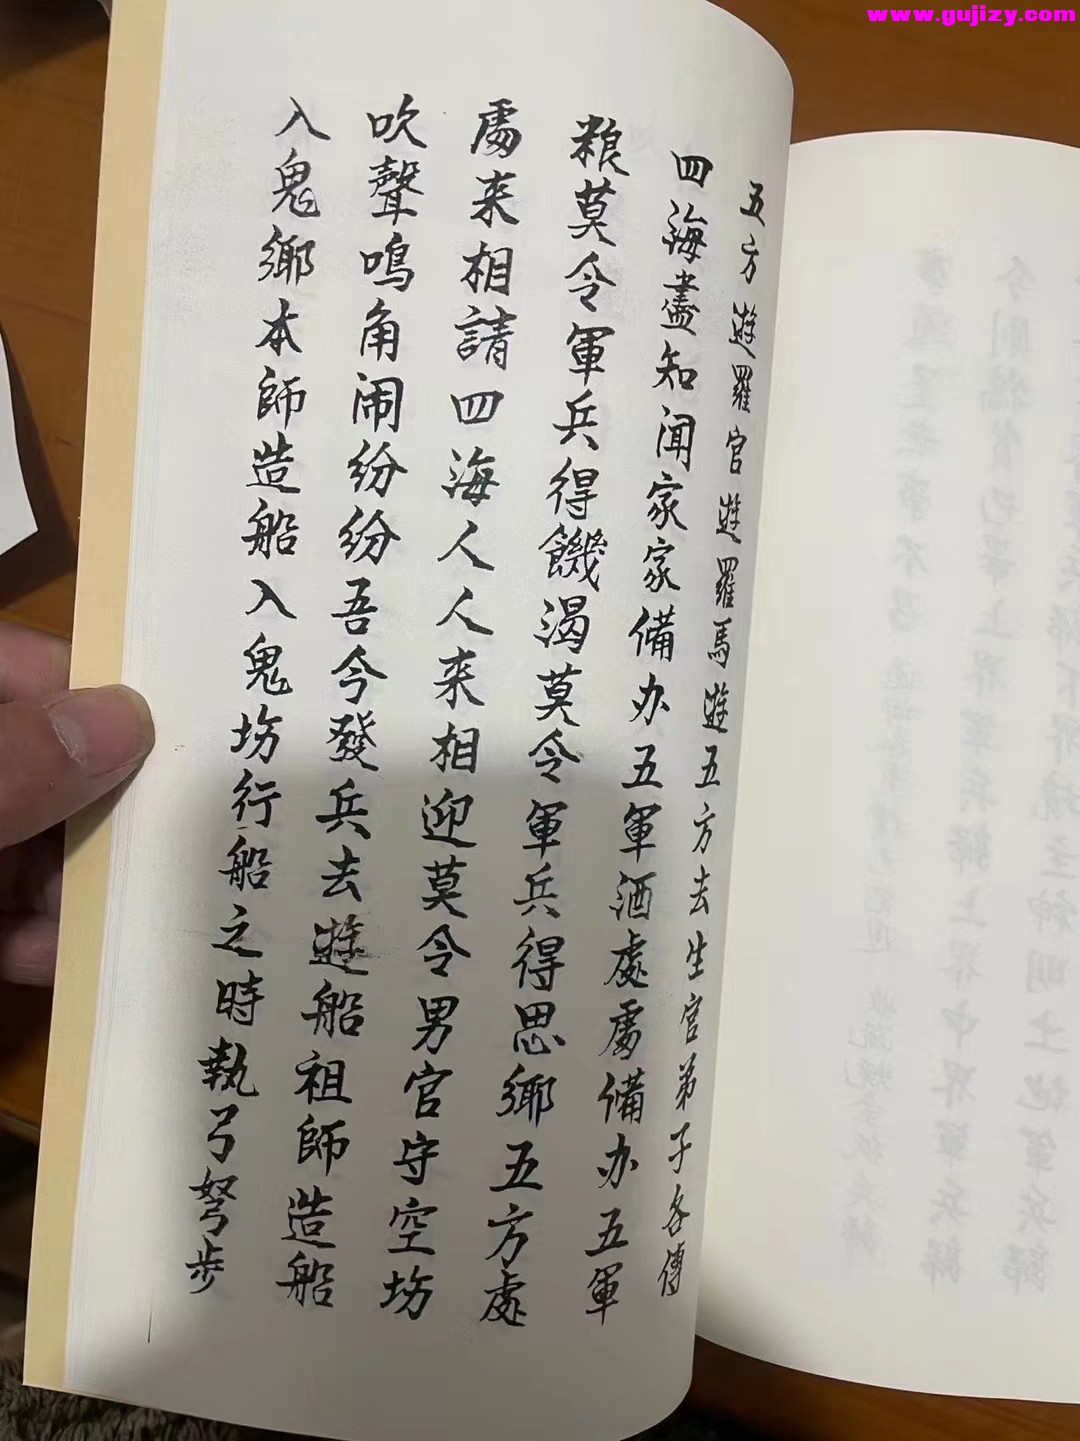 www.gujizy.com
五方遊羅官遊羅馬遊五方去生官弟子各傳
四海盡知闻家家備办五軍酒處處備办五軍
粮莫令軍兵得饑渴莫令軍兵得思鄉五方處
處来相請四海人人来相迎莫令男官守空坊
吹聲鳴角闹纷纷吾今發兵去遊船祖師造船
入鬼鄉本師造船入鬼坊行船之時執弓弩步